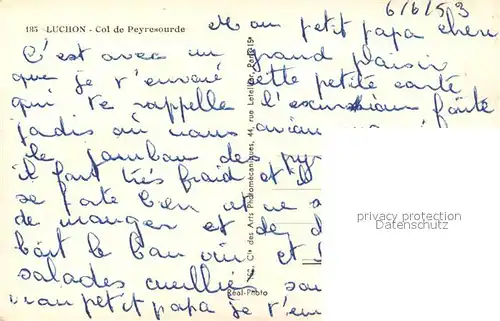 6/6/53
185 LUCHON - Col de Peyresourde
Mon petit papa cheri
C'est avec un grand plaisir
que je t'envoie cette petite carte
qui te rappelle l'excursion faite
jadis où nous avions
le jambon des pyr
il fait très froid et
se porte bien et ne
de manger et de
boit le bon vin et
salades cueillies sou
mon petit papa je t'em
Cie des Arts Photomécaniques, 44, rue Letellier, Paris-15e
Réal-Photo
privacy protection
Datenschutz